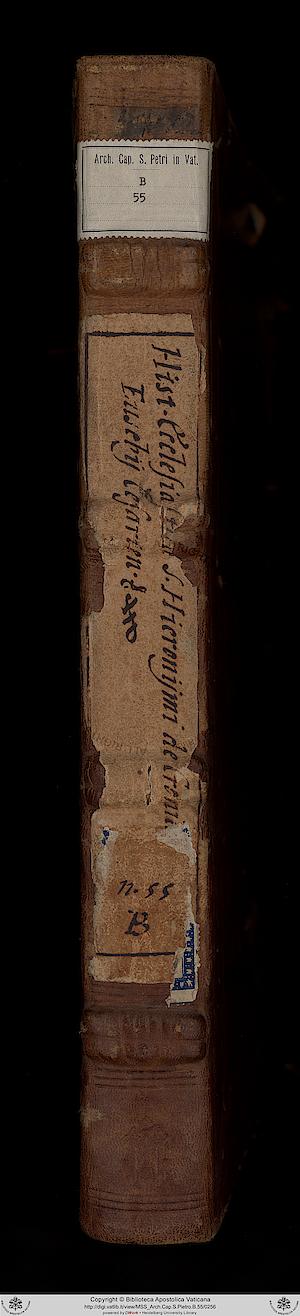 Arch. Cap. S. Petri in Vat.
B
55
Hist. Ecclesia S. Hieronijmi de
Eusebij
n. 55
B
Copyright © Biblioteca Apostolica Vaticana
http://digi.vatlib.it/view/MSS_Arch.Cap.S.Pietro.B.55/0256
powered by DWork • Heidelberg University Library